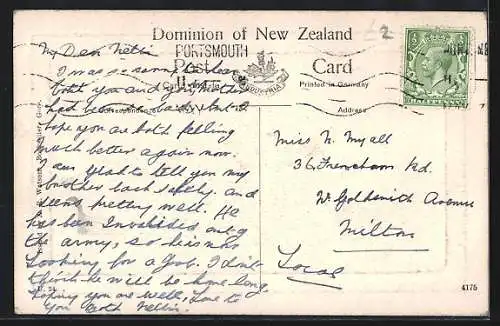 Dominion of New Zealand
£2
PORTSMOUTH
Post Card
Printed in Germany
Address
My Dear Nellie
I was so sorry to hear
both you and your mother
had been so bad, but I
hope you are both feeling
much better again now.
I am glad to tell you my
brother back safely, and
seems pretty well. He
has been Invalided out of
the army, so he is now
looking for a job. I don't
think he will be home long
hoping you are well, love to
you both Nellie.
Miss N. Myall
36, Frensham Rd.
W. Goldsmith Avenue
Milton
Local
4175